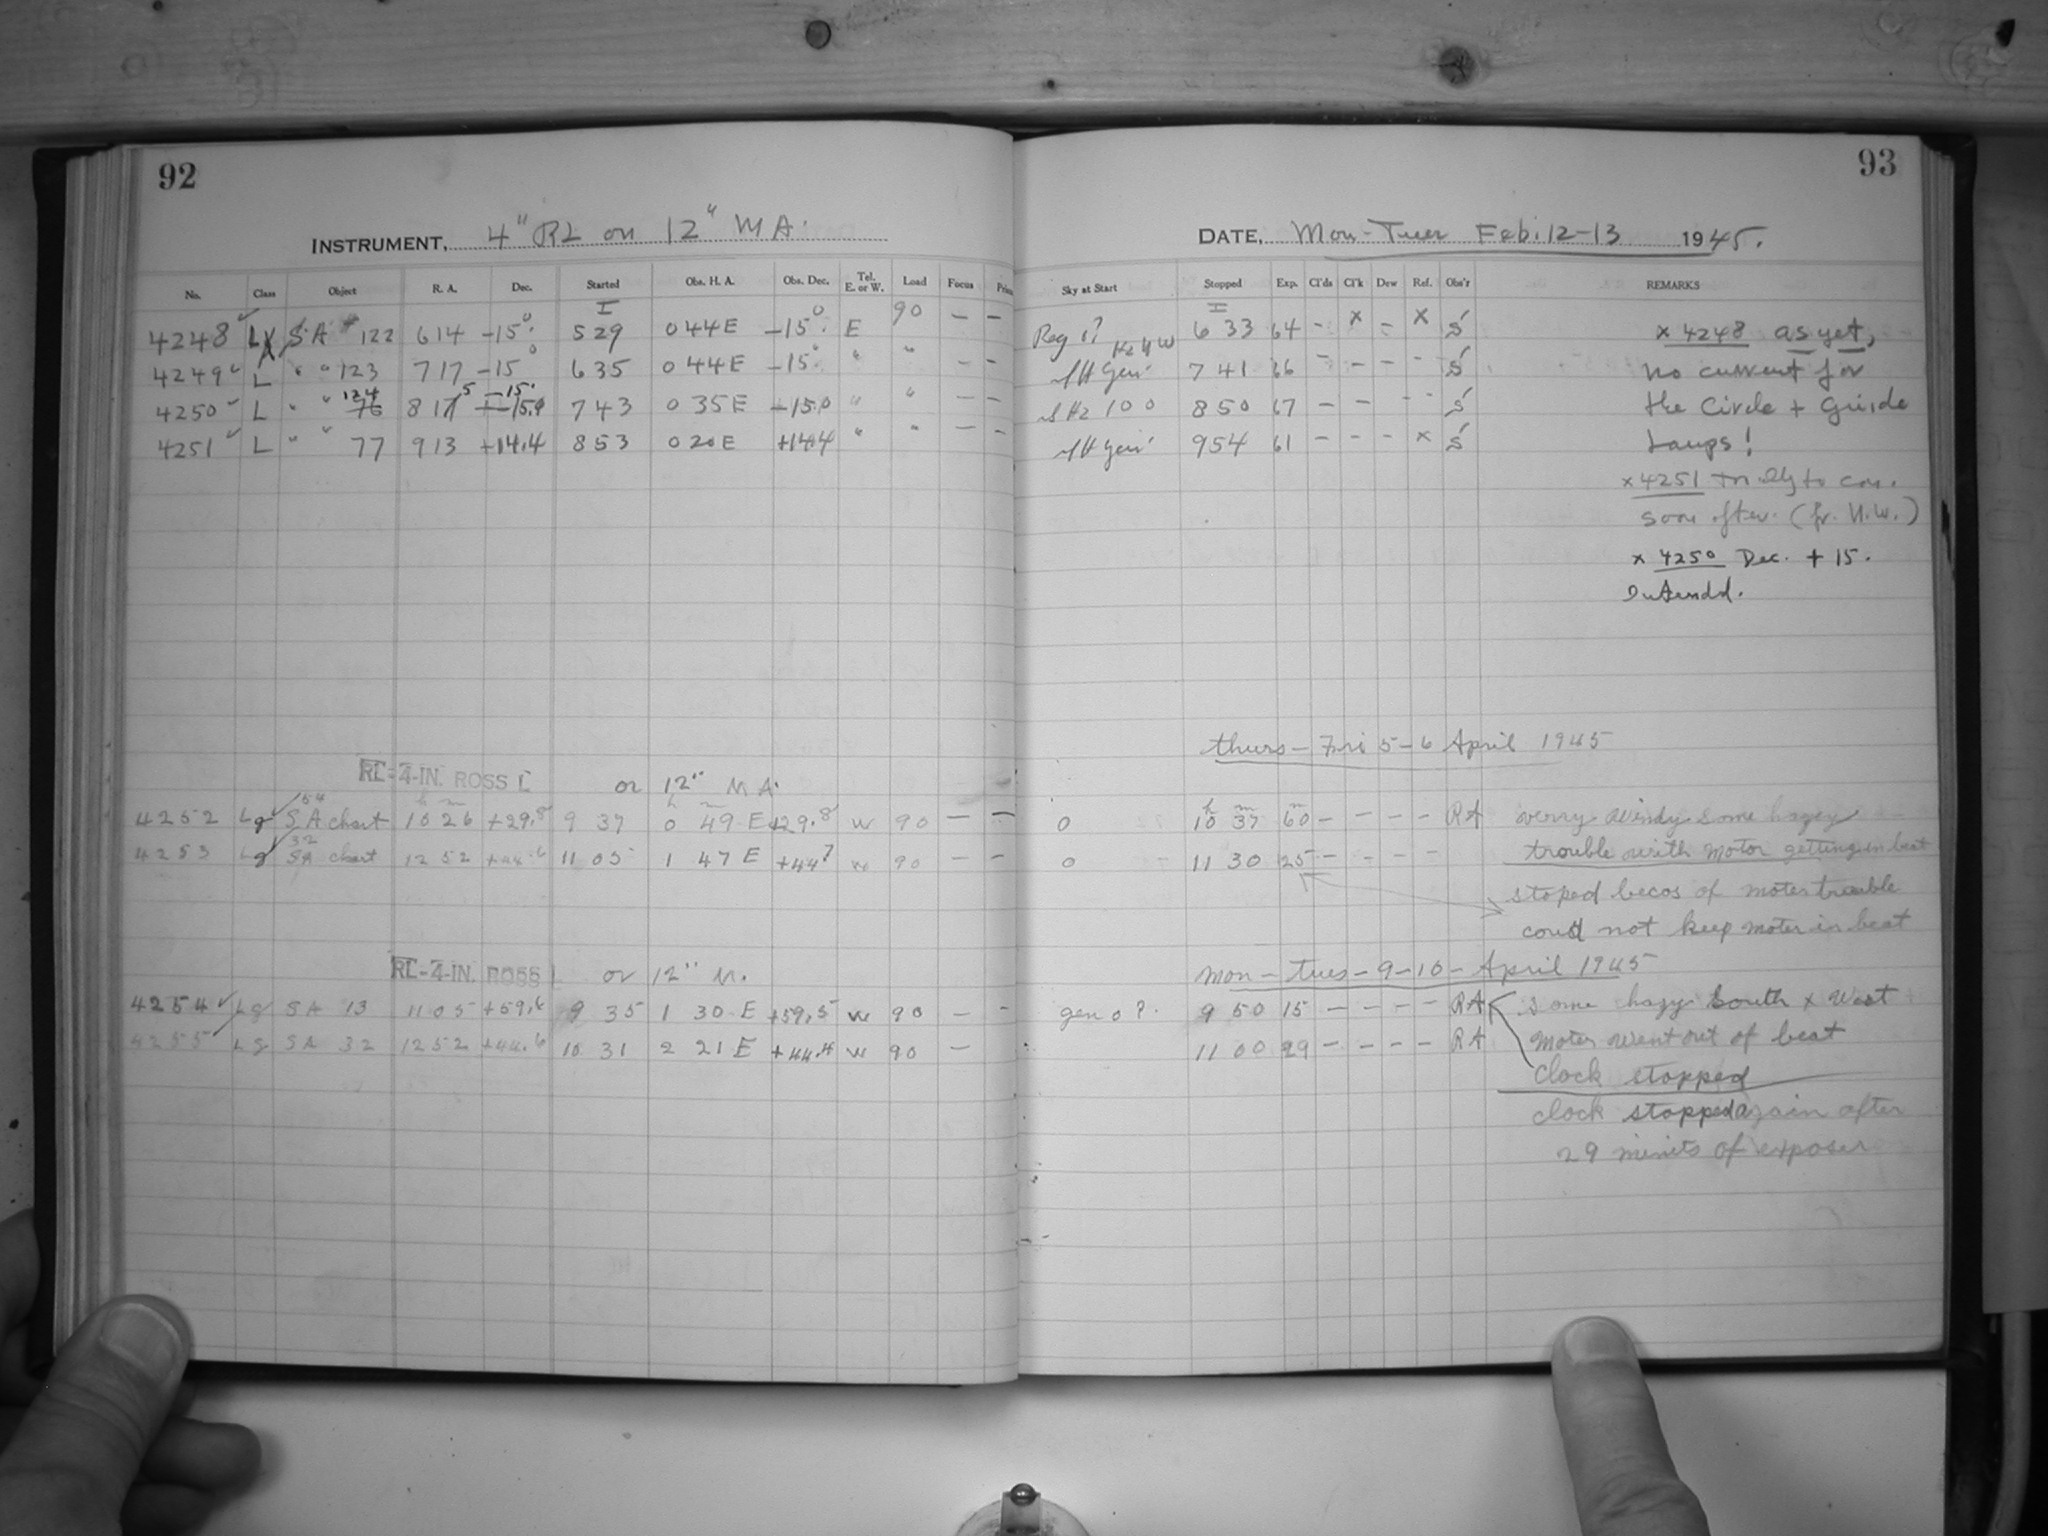 92
INSTRUMENT, 4" RL on 12" M A.
No. Class Object R. A. Dec. Started Obs. H. A. Obs. Dec. Tel. E. or W. Load Focus
4248 S A 122 6 14 -15° 5 29 0 44 E -15° E 90 - -
4249 L " " 123 7 17 -15° 6 35 0 44 E -15° " " - -
4250 L " " 124 8 17 7 43 0 35 E -15.0 " " - -
4251 L " " 77 9 13 +14.4 8 53 0 20 E +14.4 " " - -
RL-4-IN. ROSS L or 12" M A.
4252 Lg 54 S A chart 10 26 +29.8 9 37 0 49 E +29.8 w 90 - -
4253 Lg 32 SA chart 12 52 +44.6 11 05 1 47 E +44.7 w 90 - -
RL-4-IN. ROSS or 12" M.
4254 Lg S A 13 11 05 +59.6 9 35 1 30 E +59.5 w 90 - -
4255 Lg S A 32 12 52 +44.6 10 31 2 21 E +44.4 w 90 -
93
DATE, Mon-Tues Feb. 12-13 1945.
Sky at Start Stopped Exp. Cl'ds Cl'k Dew Ref. Obs'r REMARKS
6 33 64 - x - x S x 4248 as yet,
7 41 66 - - - - S no current for
8 50 67 - - - - S the Circle + Guide
9 54 61 - - - x S Lamps!
x 4251
soon after. (fr. N.W.)
x 4250 Dec. + 15.
Intended.
thurs - Fri 5-6 April 1945
0 10 37 60 - - - - RA verry windy some hazey
0 11 30 25 - - - - trouble with motor getting in beat
stoped becos of moter trouble
coud not keep moter in beat
mon - tues - 9-10 - April 1945
gen 0 ? 9 50 15 - - - - RA some hazy South x West
11 00 29 - - - - RA moter went out of beat
clock stopped
clock stopped again after
29 minits of exposer